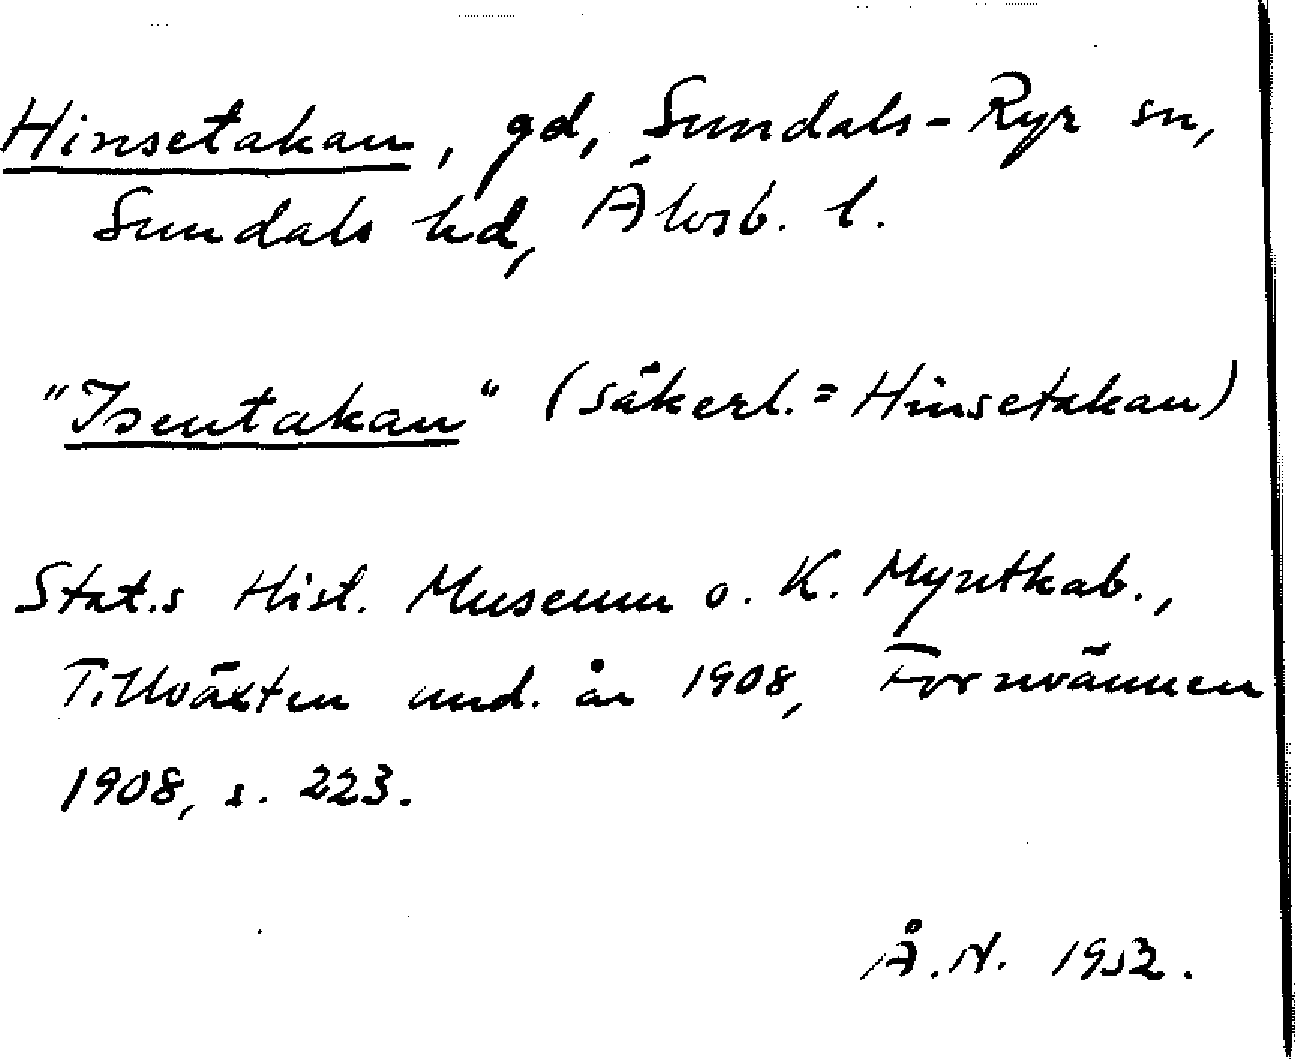 Hinsetakan, gd, Sundals-Ryr sn,
Sundals hd, Älvsb. l.
"Isentakan" (säkerl. = Hinsetakan)
Stat.s Hist. Museum o. K. Myntkab.,
Tillväxten und. år 1908, Fornvännen
1908, s. 223.
Å.N. 1952.